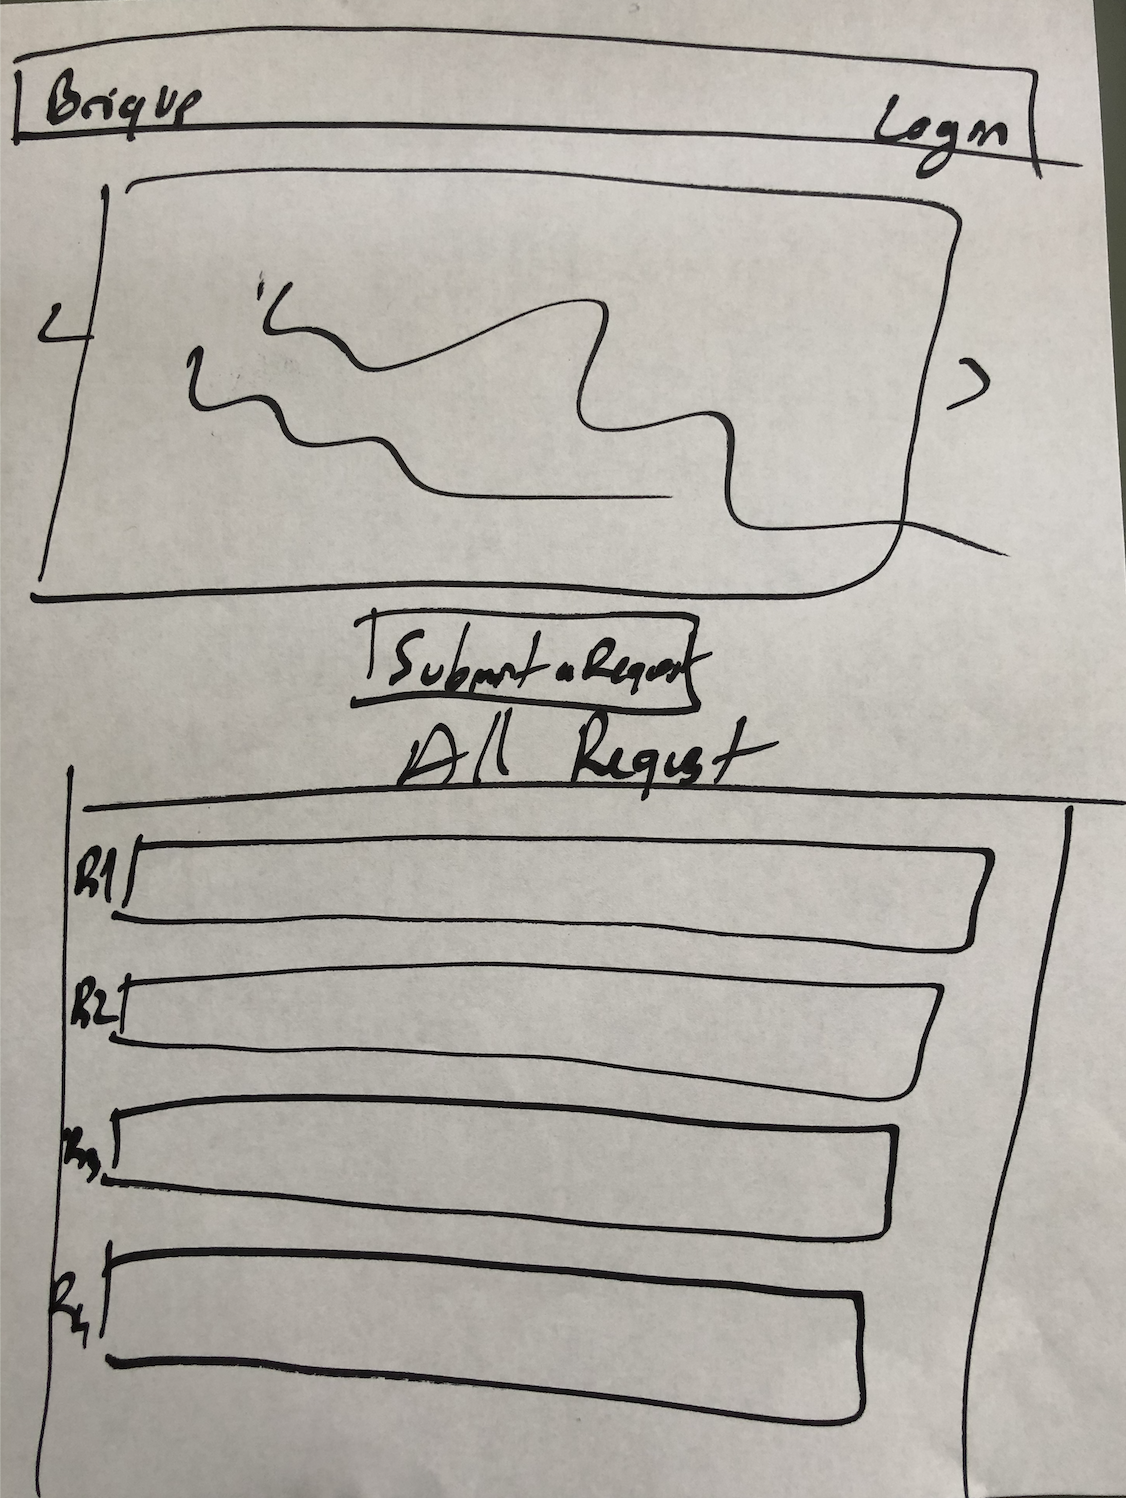 BriqUp
Login
<
>
Submit a Request
All Request
R1
R2
R3
R4